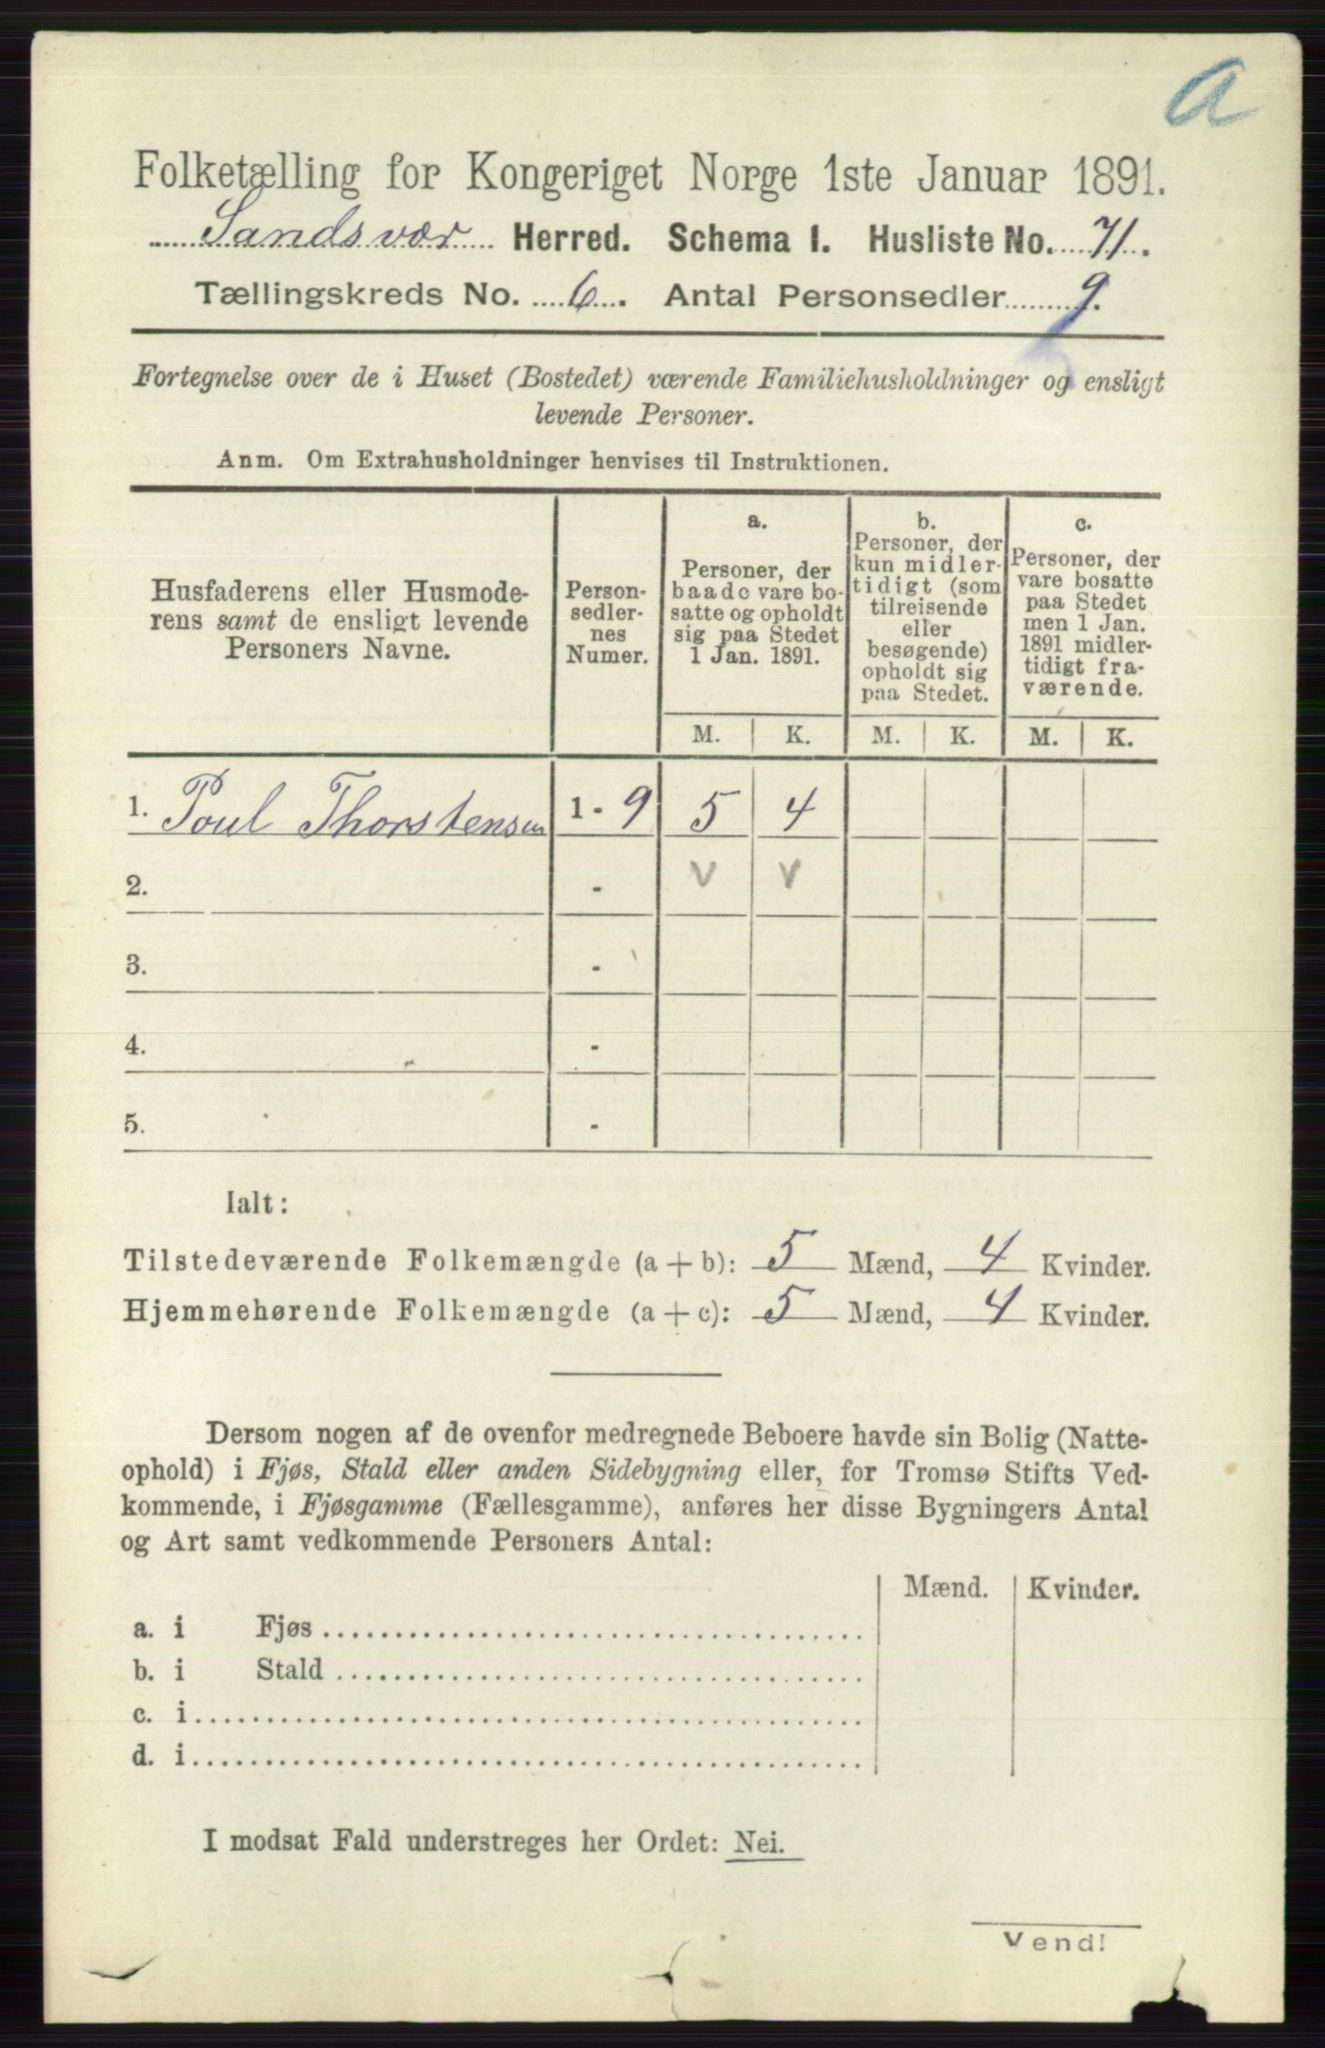 a
Folketælling for Kongeriget Norge 1ste Januar 1891.
Sandsvær Herred. Schema I. Husliste No. 71.
Tællingskreds No. 6. Antal Personsedler 9.
Fortegnelse over de i Huset (Bostedet) værende Familiehusholdninger og ensligt
levende Personer.
Anm. Om Extrahusholdninger henvises til Instruktionen.
Husfaderens eller Husmode-
rens samt de ensligt levende
Personers Navne.
Person-
sedler-
nes
Numer.
a.
Personer, der
baade vare bo-
satte og opholdt
sig paa Stedet
1 Jan. 1891.
b.
Personer, der
kun midler-
tidigt (som
tilreisende
eller
besøgende)
opholdt sig
paa Stedet.
c.
Personer, der
vare bosatte
paa Stedet
men 1 Jan.
1891 midler-
tidigt fra-
værende.
M. K. M. K. M. K.
1. Poul Thorstensen 1 - 9 5 4
2. - v v
3. -
4. -
5. -
Ialt:
Tilstedeværende Folkemængde (a + b): 5 Mænd, 4 Kvinder.
Hjemmehørende Folkemængde (a + c): 5 Mænd, 4 Kvinder.
Dersom nogen af de ovenfor medregnede Beboere havde sin Bolig (Natte-
ophold) i Fjøs, Stald eller anden Sidebygning eller, for Tromsø Stifts Ved-
kommende, i Fjøsgamme (Fællesgamme), anføres her disse Bygningers Antal
og Art samt vedkommende Personers Antal:
Mænd. Kvinder.
a. i Fjøs
b. i Stald
c. i
d. i
I modsat Fald understreges her Ordet: Nei.
Vend!